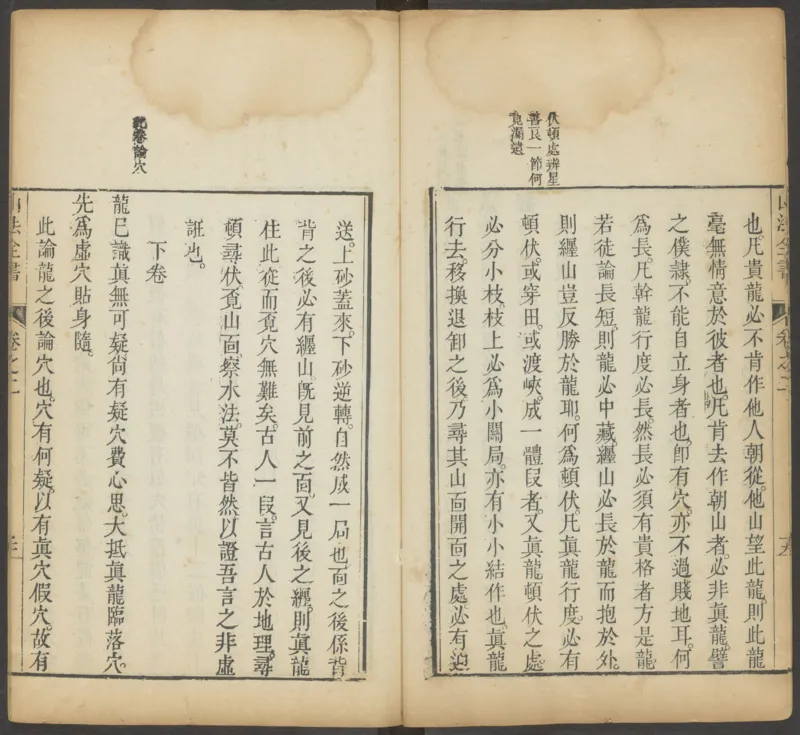 伏頓處辨星
善長一節何
見濶遠
也凡貴龍必不肯作他人朝從他山望此龍則此龍
毫無情意於彼者也凡肯去作朝山者必非真龍譬
之僕隷不能自立身者也卽有穴亦不過賤地耳何
爲長凡幹龍行度必長然長必須有貴格者方是龍
若徒論長短則龍必中藏纒山必長於龍而抱於外
則纒山豈反勝於龍耶何爲頓伏凡真龍行度必有
頓伏或穿田或渡峽成一體叚者又真龍頓伏之處
必分小枝枝上必爲小關局亦有小小結作也真龍
行去移換退卸之後乃尋其山面開面之處必有迫
山法全書
卷之二
送上砂蓋來下砂逆轉自然成一局也面之後係背
背之後必有纒山旣見前之面又見後之纒則眞龍
住此從而覔穴無難矣古人一叚言古人於地理尋
頓尋伏覔山面察水法莫不皆然以證吾言之非虛
誑也
下卷
龍已識眞無可疑尙有疑穴費心思大抵眞龍臨落穴
先爲虛穴貼身隨
此論龍之後論穴也穴有何疑以有眞穴假穴故有
卷論穴
山法全書
卷之二